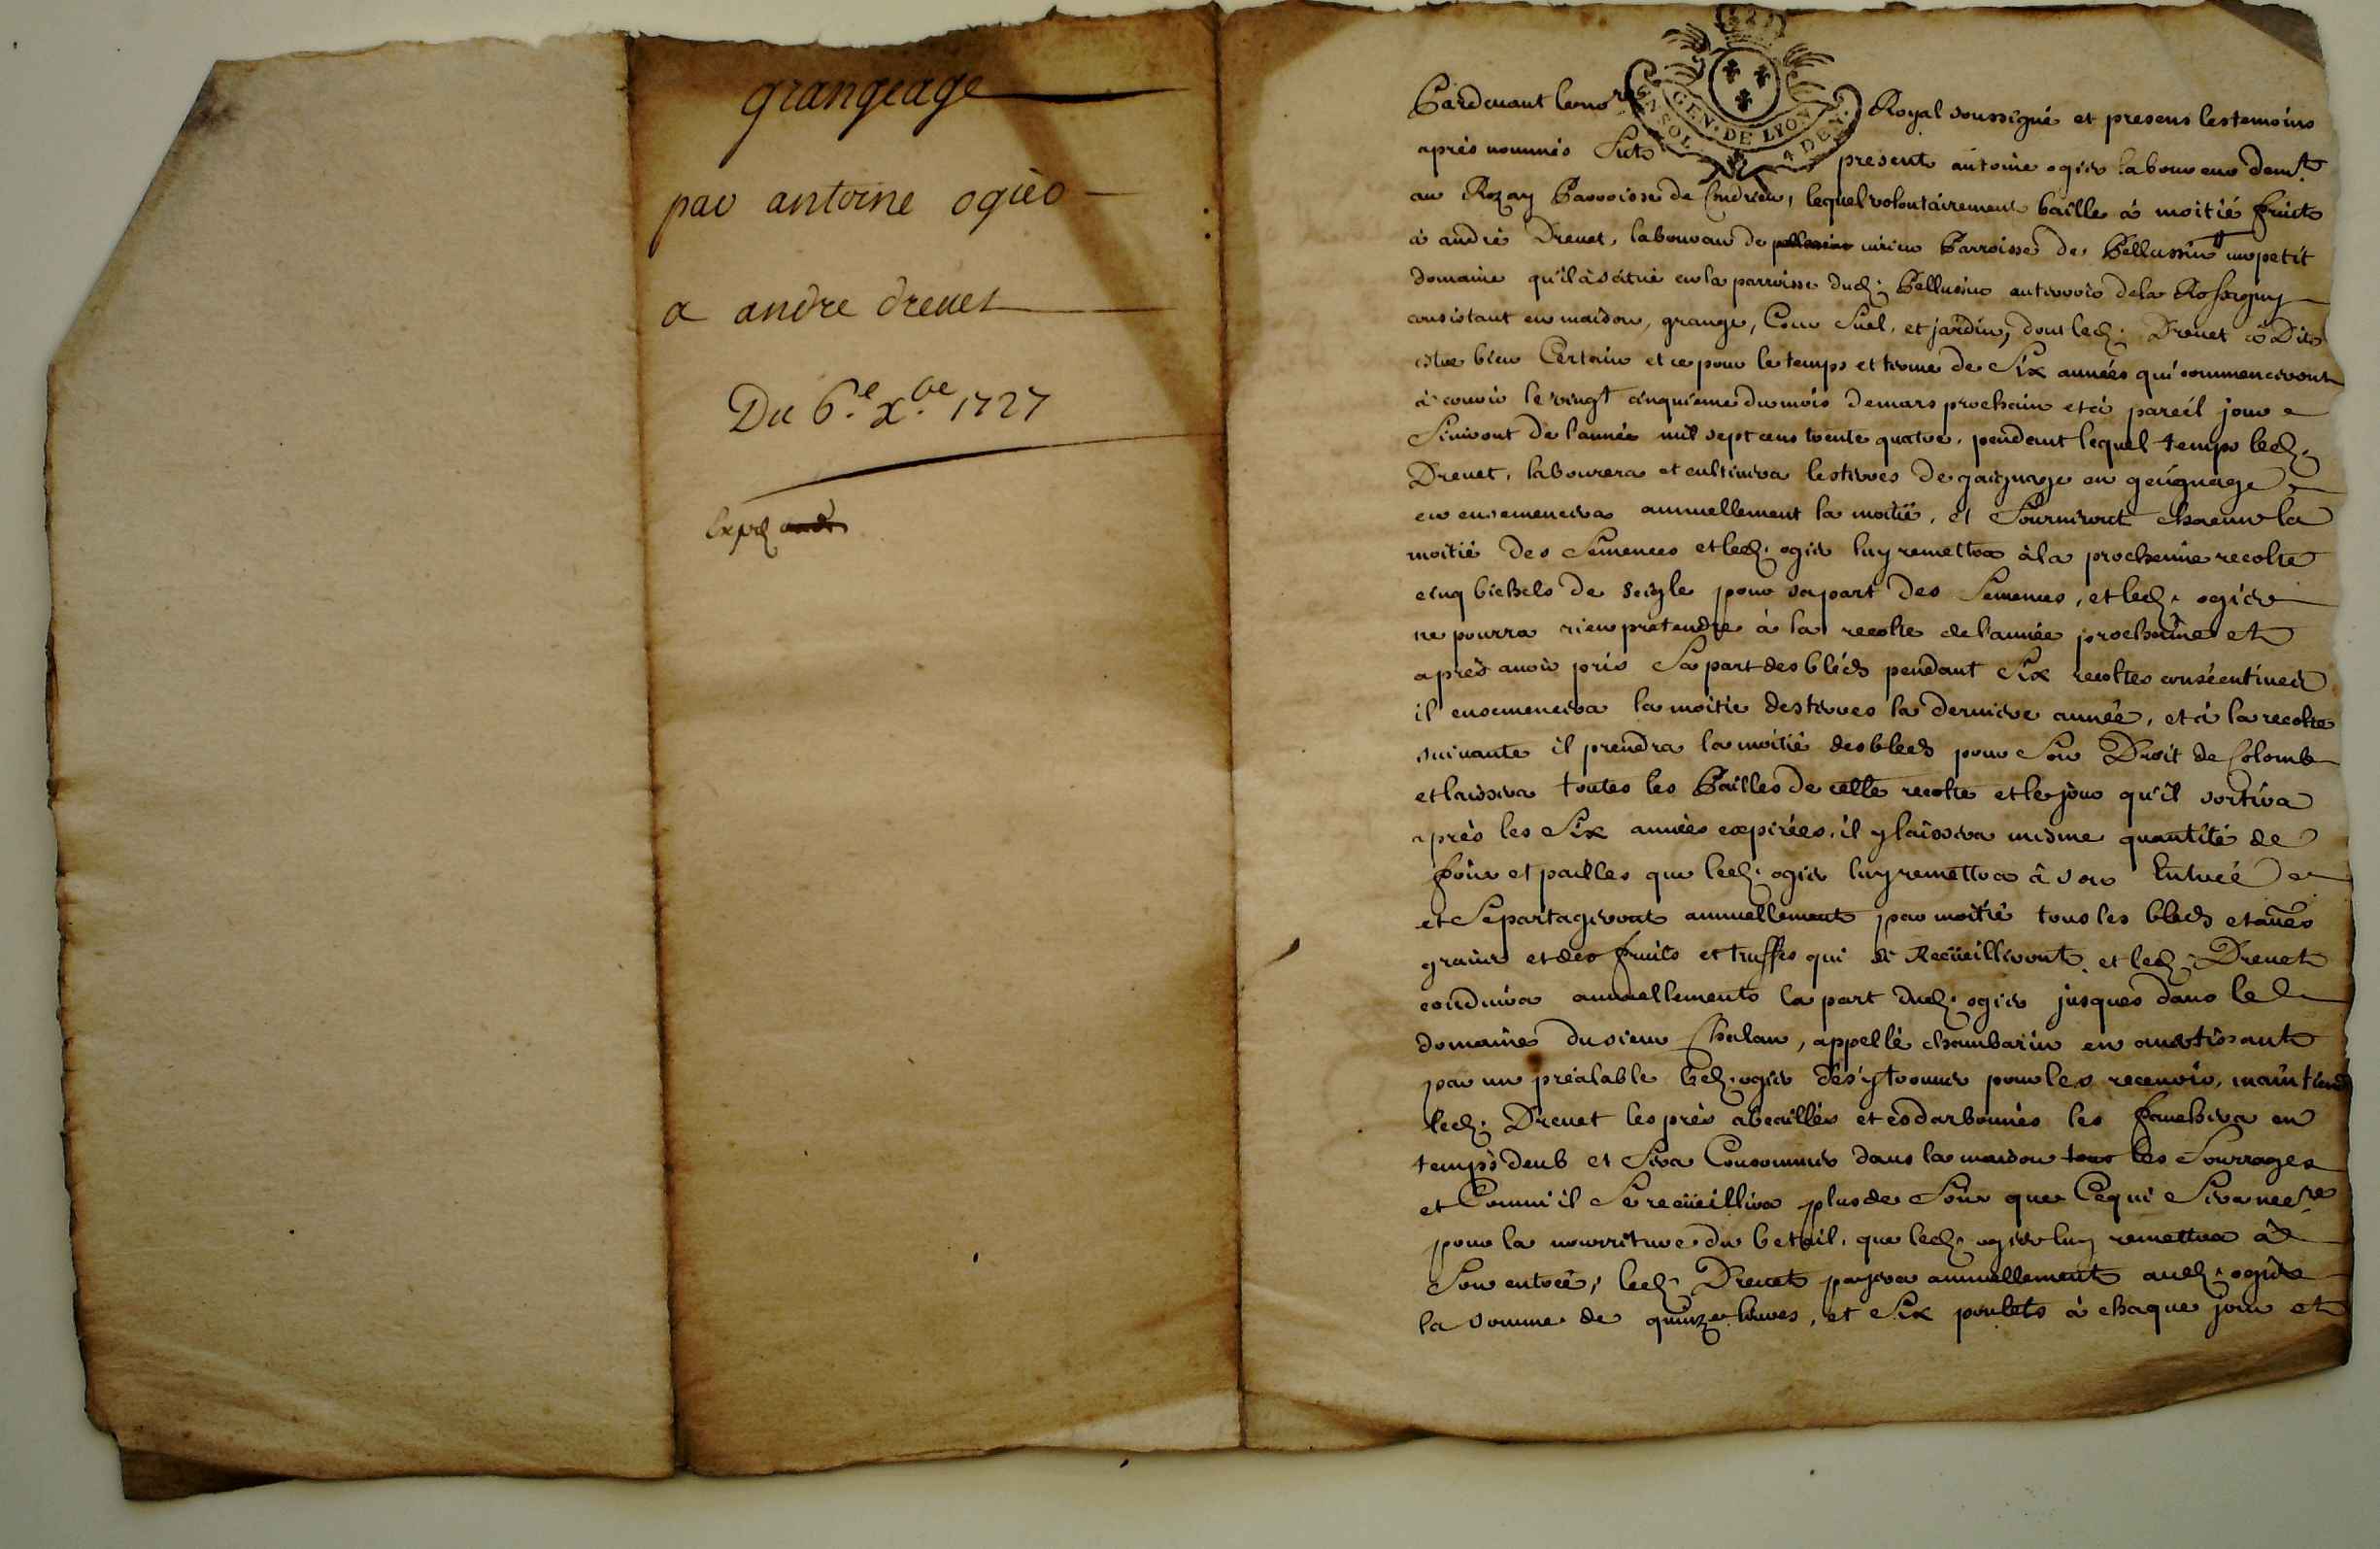 grangeage
par antoine ogier
a andre dreuet
Du 6.e xbre 1727
Expd
GEN. DE LYON
SOL
4 DEN.
Pardeuant le nore Royal soussigné et presens les temoins
après nommés fut present antoine ogier laboureur demt
au Rozay Parroisse de Condrieu, lequel volontairement baille à moitié fruits
à andré Dreuet, laboureur de Parroisse de Pellussin un petit
domaine qu'il à scitué en la parroisse dud. Pellussin au terroir de la
consistant en maison, grange, Cour Suel, et jardin, dont led. Dreuet à Dit
estre bien Certain et ce pour le temps et terme de Six années qui commenceront
à courir le vingt cinquieme du mois de mars prochain et à pareil jour
finiront de l'année mil sept cens trente quatre, pendant lequel temps led.
Dreuet, labourera et cultivera les terres de gaignage en geügnage
en ensemencera annuellement la moitié, et fourniront chacun la
moitié des Semences et led. ogier luy remettra à la prochenne recolte
cinq bichets de seigle pour sa part des Semences, et led. ogier
ne pourra rien pretendre à la recolte de l'année prochaine et
après auoir pris Sa part des bléds pendant Six recoltes conséentiues
il ensemencera la moitié des terres la derniere année, et à la recolte
suivante il prendra la moitié des bleds pour Son Droit de Colomb
et laissera toutes les Pailles de celle recolte et le jour qu'il sortira
après les Six années expirées, il y laissera mesme quantité de
foin et pailles que led. ogier luy remettra à son Entreé
et Se partageront annuellement par moitié tous les bleds et autres
grains et des fruits et truffes qui se Recüeilliront, et led. Dreuet
conduira annuellement la part dud. ogier jusques dans le
domaine du sieur Chalan, appellé chambarin en auertissant
par un préalable led. ogier de s'y trouuer pour les receuoir, maintiendra
led. Dreuet les près abeaillés et esdarbonnés les fauchera en
temps deub et fera Consommer dans la maison les fourrages
et Comm'il Se recüeillira plus de foin que Ce qui Sera necre
pour la nourriture du betail, que led. ogier luy remettra à
Son entreé, led. Dreuet payera annuellement aud. ogier
la somme de quinze liures, et Six poulets à chaque jour et